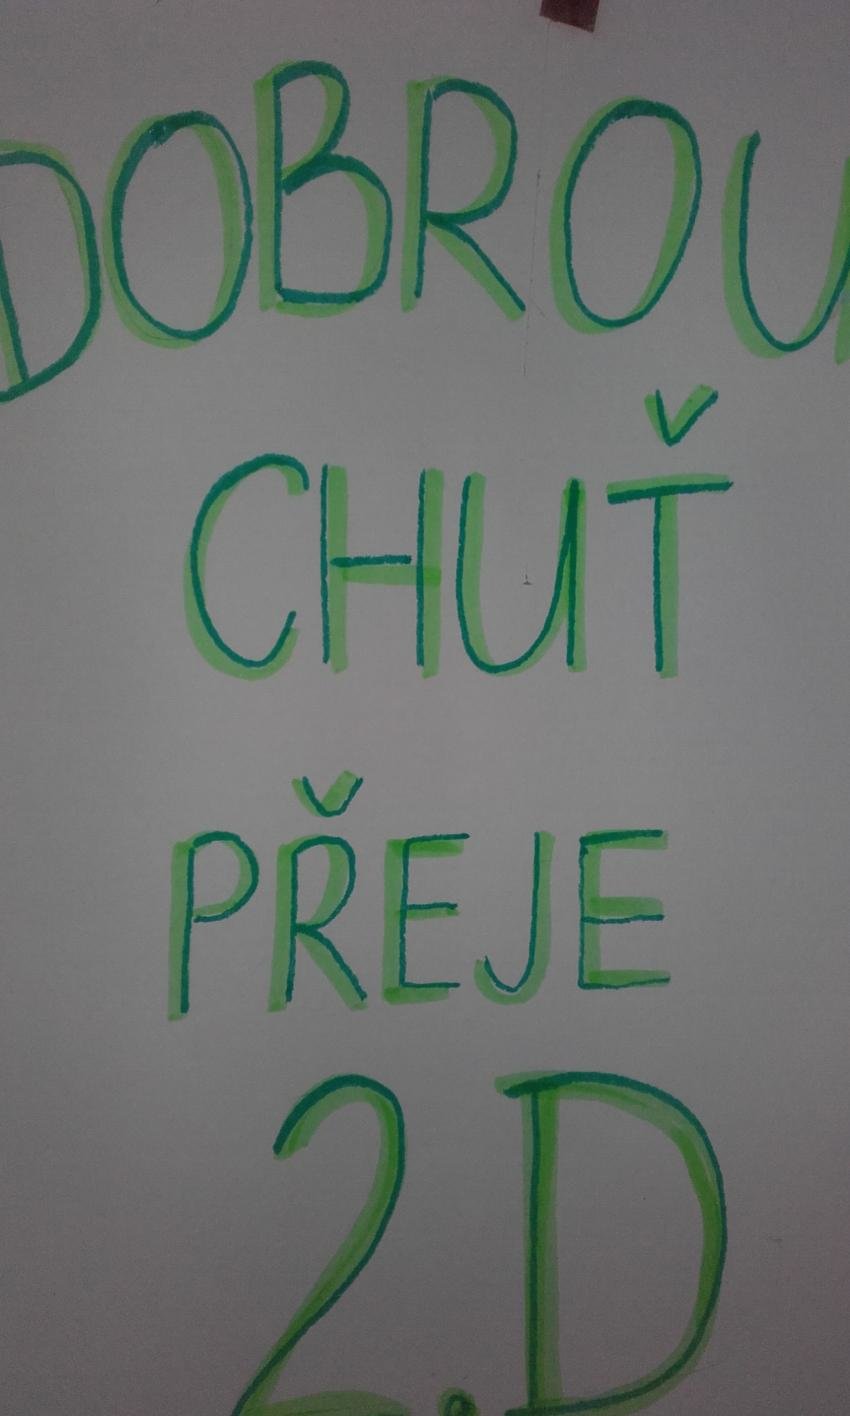 DOBROU
CHUŤ
PŘEJE
2.D